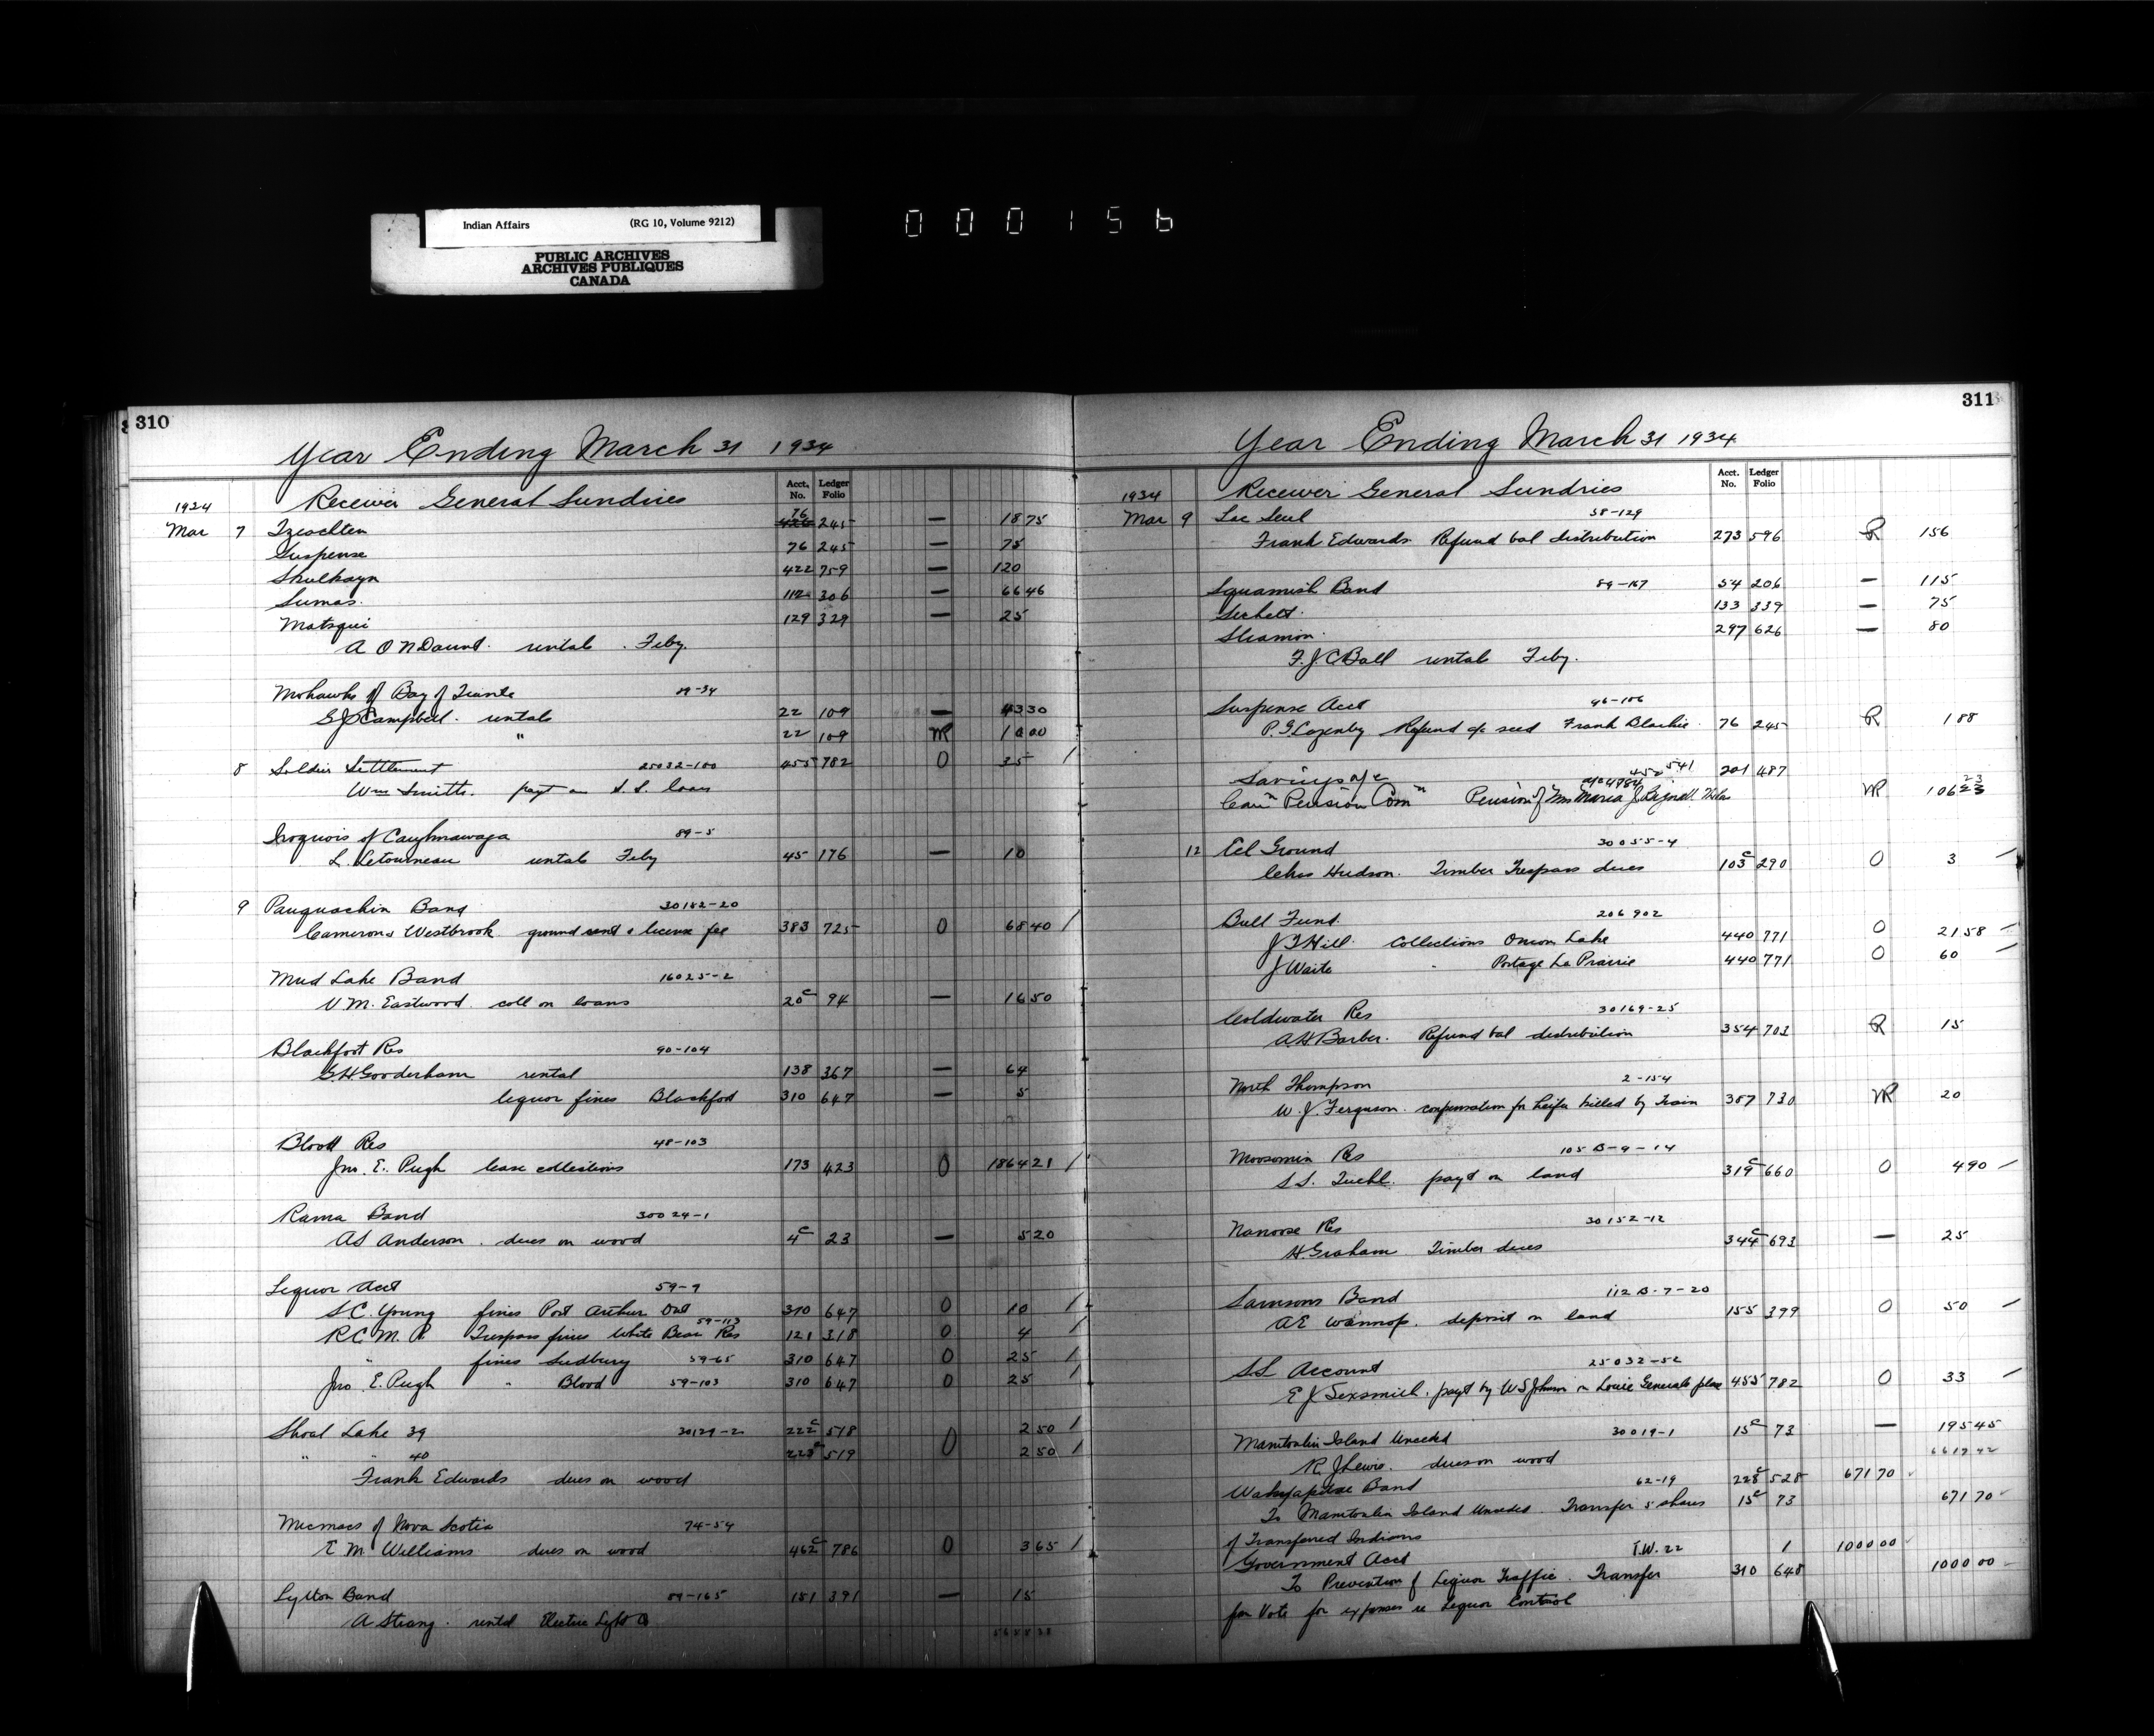 Indian Affairs (RG 10, Volume 9212)
PUBLIC ARCHIVES
ARCHIVES PUBLIQUES
CANADA
000156
310
Year Ending March 31 1934
Acct. No. Ledger Folio
1934 Receiver General Sundries
Mar 7 Tzeachten 76 245 — 18 75
Suspense 76 245 — 75
Skulkayn 422 759 — 120
Sumas 112 306 — 66 46
Matsqui 129 329 — 25
A O'N Daunt. rentals Feby.
Mohawks of Bay of Quinte 89-34
G J Campbell. rentals 22 109 — 43 30
" 22 109 MR 10 00
8 Soldier Settlement 25032-100 455 782 O 35 /
Wm Smith. payt on S.S. loan
Iroquois of Caughnawaga 89-5
L. Letourneau rentals Feby 45 176 — 10
9 Pauquachin Band 30182-20
Cameron & Westbrook ground rent & license fee 383 725 O 68 40 /
Mud Lake Band 16025-2
V. M. Eastwood. coll on loans 20c 94 — 16 50
Blackfoot Res 90-104
G.H. Gooderham rental 138 367 — 64
liquor fines Blackfoot 310 647 — 5
Blood Res 48-103
Jno. E. Pugh lease collections 173 423 O 1864 21 /
Rama Band 30024-1
AS Anderson. dues on wood 4c 23 — 5 20
Liquor Acct 59-9
S.C. Young fines Port Arthur Dist 310 647 O 10 /
59-113
R.C.M.P. Trespass fines White Bear Res 121 318 O 4 /
" fines Sudbury 59-65 310 647 O 25 /
Jno. E. Pugh " Blood 59-103 310 647 O 25 /
Shoal Lake 39 30129-2 222c 518 O 2 50 /
" " 40 223c 519 2 50 /
Frank Edwards dues on wood
Micmacs of Nova Scotia 74-54
E M Williams dues on wood 462c 786 O 3 65 /
Lytton Band 89-165 151 391 — 15
A Strang. rental Electric Light
311
Year Ending March 31 1934
Acct. No. Ledger Folio
1934 Receiver General Sundries
Mar 9 Lac Seul 58-129
Frank Edwards Refund bal distribution 273 596 R 156
Squamish Band 89-167 54 206 — 115
Sechelt. 133 339 — 75
Sliamon. 297 626 — 80
F.J.C. Ball rentals Feby.
Suspense Acct 96-106
P.G. Lazenby Refund a/c seed Frank Blackie. 76 245 R 1 88
Savings a/c 452-541 201 487
Can'n Pension Com'n Pension of Mrs Maria J MR 106 23
12 Eel Ground 30055-4
Chas Hudson. Timber Trespass dues 103c 290 O 3
Bull Fund. 206 902
J T Hill. Collections Onion Lake 440 771 O 21 58
J Waite " Portage La Prairie 440 771 O 60
Coldwater Res 30169-25
A.H. Barber. Refund bal distribution 354 703 R 15
North Thompson 2-154
W. J. Ferguson. compensation for heifer killed by train 387 730 MR 20
Moosomin Res 105 B-9-14
S.S. payt on land 319c 660 O 490
Nanoose Res 30152-12
H. Graham Timber dues 344c 693 — 25
Samsons Band 112 B-7-20
A E Wannop. deposit on land 155 399 O 50
S.S. Account 25032-52
E J Sexsmith. payt by W S Johnson on Louie Generals place 455 782 O 33
Manitoulin Island Unceded 30019-1 15c 73 — 195 45
R. J Lewis. dues on wood
Band 62-19 228c 528 671 70
To Manitoulin Island Unceded. Transfer 5 shares 15c 73 671 70
of Transferred Indians
Government Acct T.W. 22 1 1000 00
To Prevention of Liquor Traffic. Transfer 310 648 1000 00
from Vote for expenses re Liquor Control